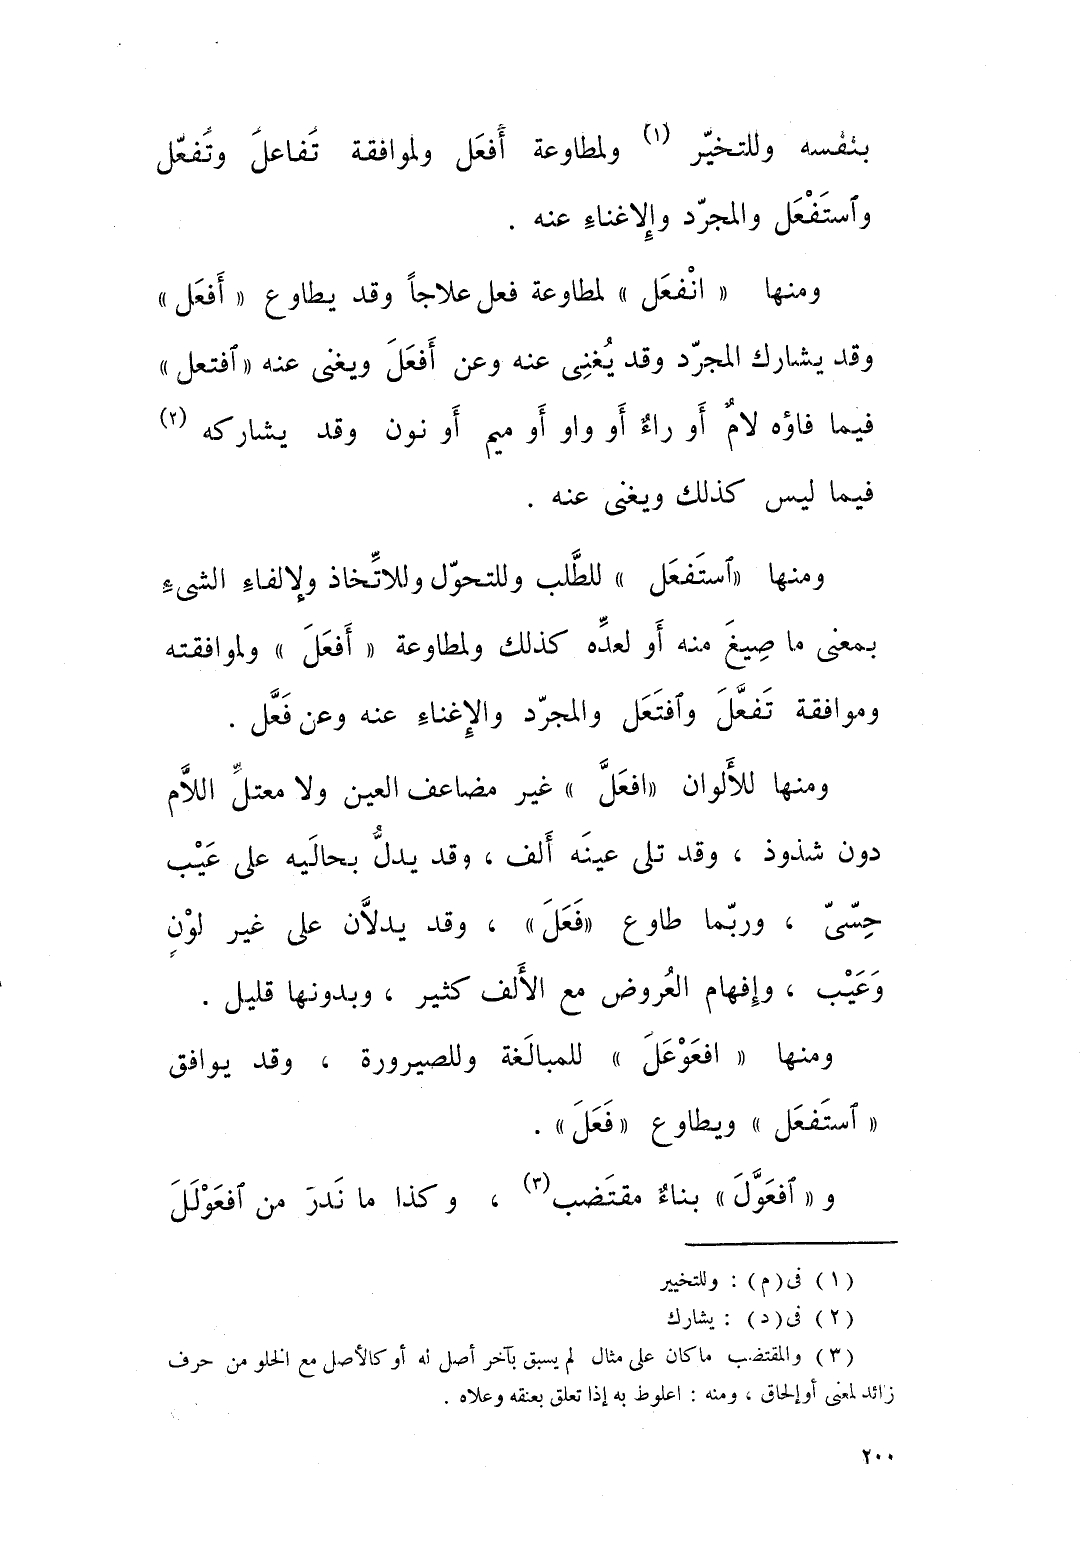 بنفْسه وللتخيّر (١) ولمطاوعة أَفعَل ولموافقة تَفاعلَ وتَفعّل
وٱستَفْعَل والمجرّد وإِلاغناءِ عنه .
ومنها « انْفعَل » لمطاوعة فعل علاجاً وقد يطاوع « أَفعَل »
وقد يشارك المجرّد وقد يُغنِى عنه وعن أَفعَلَ ويغنى عنه « ٱفتعل »
فيما فاؤه لامٌ أَو راءٌ أَو واو أَو ميم أَو نون وقد يشاركه (٢)
فيما ليس كذلك ويغنى عنه .
ومنها « ٱستَفعَل » للطَّلب وللتحوّل وللاتِّخاذ ولإِلفاءِ الشىءِ
بمعنى ما صِيغَ منه أَو لعدِّه كذلك ولمطاوعة « أَفعَلَ » ولموافقته
وموافقة تَفعَّلَ وٱفتَعَل والمجرّد والإِغناءِ عنه وعن فَعَّل .
ومنها للأَلوان « افعَلَّ » غير مضاعف العين ولا معتلِّ اللاَّم
دون شذوذ ، وقد تلى عينَه أَلف ، وقد يدلُّ بحالَيه على عَيْب
حِسّىّ ، وربّما طاوع « فَعَلَ » ، وقد يدلاَّن على غير لوْنٍ
وَعَيْب ، وإِفهام العُروض مع الأَلف كثير ، وبدونها قليل .
ومنها « افعَوْعَلَ » للمبالَغة وللصيرورة ، وقد يوافق
« ٱستَفعَل » ويطاوع « فَعَلَ » .
و « ٱفعَوَّلَ » بناءٌ مقتَضب (٣) ، وكذا ما نَدرَ من ٱفعَوْلَلَ
(١) فى (م) : وللتخيير
(٢) فى (د) : يشارك
(٣) والمقتضب ماكان على مثال لم يسبق بآخر أصل له أو كالأصل مع الخلو من حرف
زائد لمعنى أو إلحاق ، ومنه : اعلوط به إذا تعلق بعنقه وعلاه .
٢٠٠